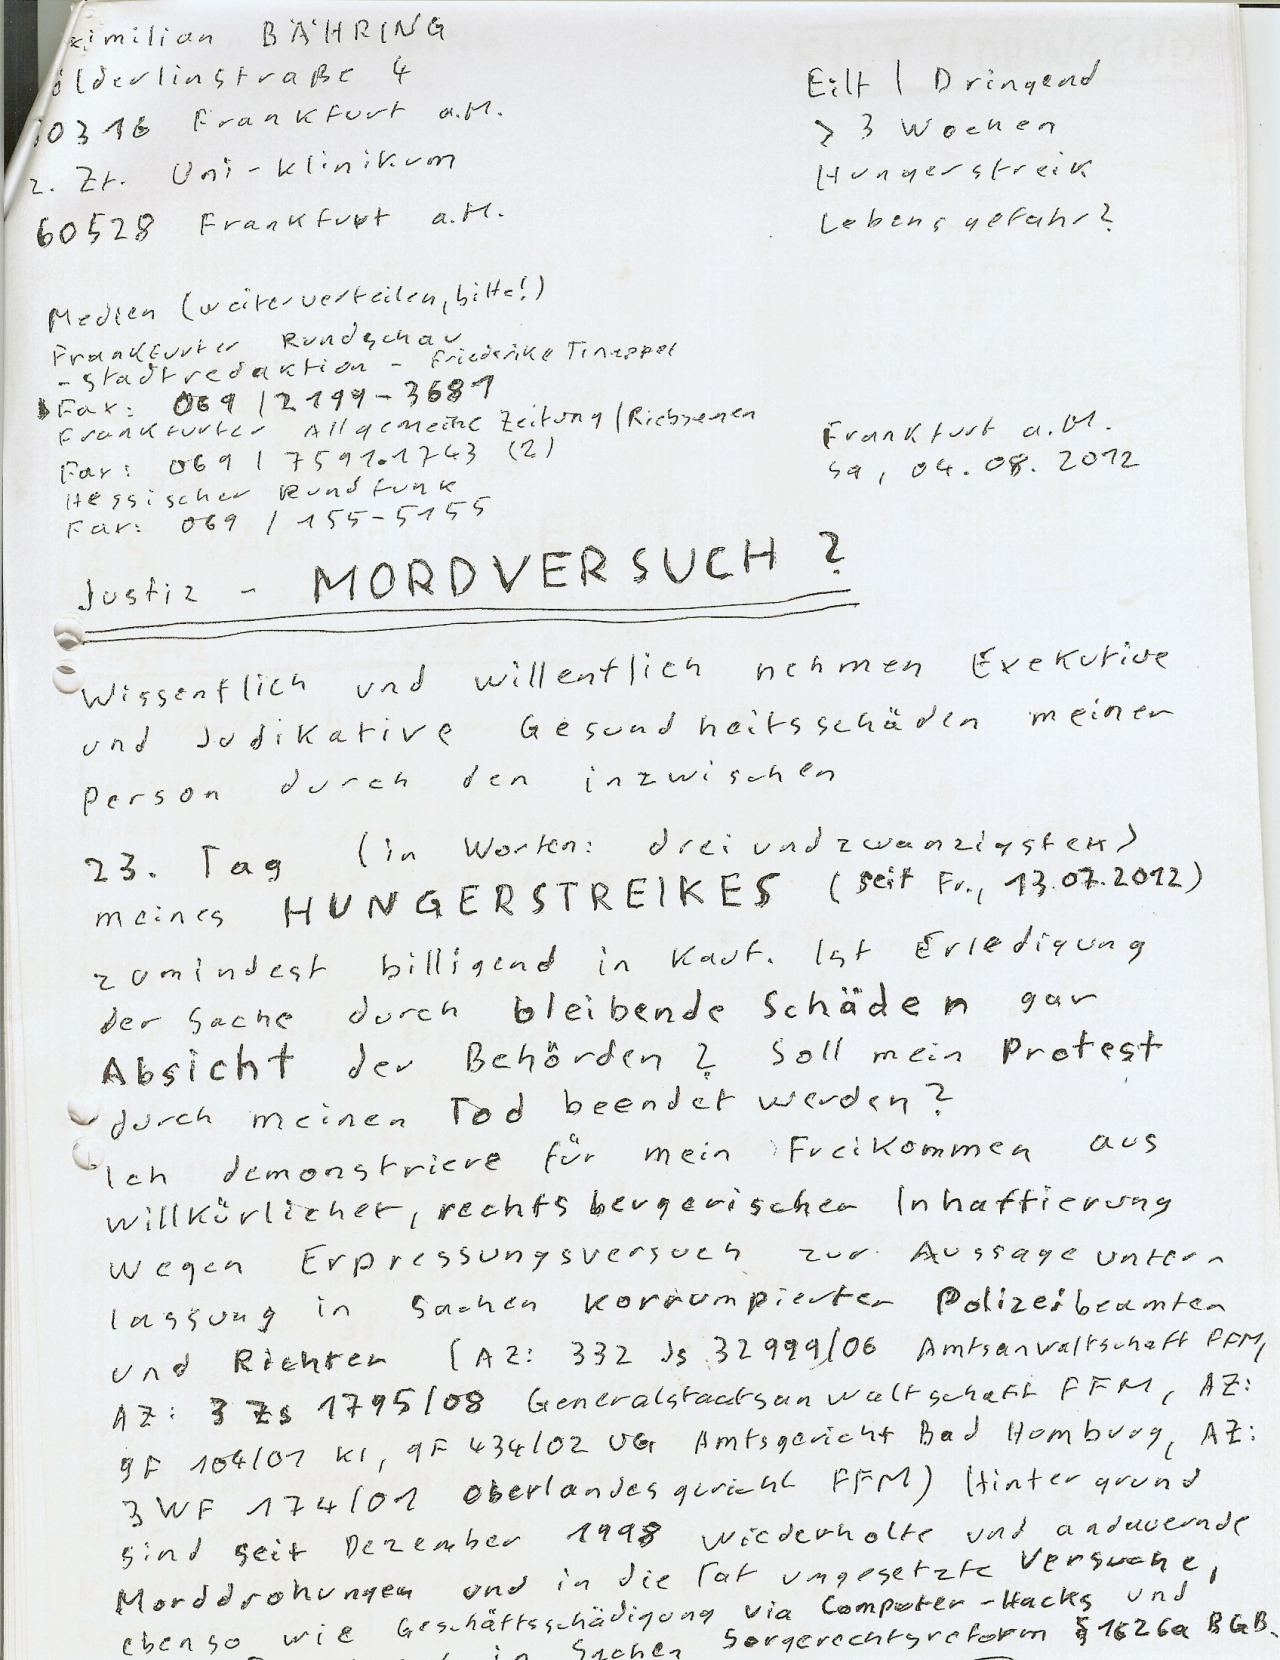 ximilian BÄHRING
ölderlinstraße 4
60316 Frankfurt a.M.
z. Zt. Uni-klinikum
60528 Frankfurt a.M.
Eilt / Dringend
> 3 Wochen
Hungerstreik
Lebensgefahr?
Medien (weiterverteilen, bitte!)
Frankfurter Rundschau
- Stadtredaktion - Friederike Tinappel
Fax: 069 / 2199-3681
Frankfurter Allgemeine Zeitung /
Fax: 069 / 7591.1743 (2)
Hessischer Rundfunk
Fax: 069 / 155-5155
Frankfurt a.M.
Sa, 04.08.2012
Justiz - MORDVERSUCH?
Wissentlich und willentlich nehmen Exekutive
und Judikative Gesundheitsschäden meiner
Person durch den inzwischen
23. Tag (in Worten: dreiundzwanzigsten)
meines HUNGERSTREIKES (seit Fr., 13.07.2012)
zumindest billigend in Kauf. Ist Erledigung
der Sache durch bleibende Schäden gar
Absicht der Behörden? Soll mein Protest
durch meinen Tod beendet werden?
Ich demonstriere für mein Freikommen aus
willkürlicher, rechtsbergerischer Inhaftierung
wegen Erpressungsversuch zur Aussageuntern
lassung in Sachen korrumpierter Polizeibeamten
und Richter (AZ: 332 Js 32999/06 Amtsanwaltschaft FFM,
AZ: 3 Zs 1795/08 Generalstaatsanwaltschaft FFM, AZ:
9F 104/01 KI, 9F 434/02 UG Amtsgericht Bad Homburg, AZ:
3 WF 174/01 Oberlandesgericht FFM) Hintergrund
sind seit Dezember 1998 wiederholte und andauernde
Morddrohungen und in die Tat umgesetzte Versuche,
ebenso wie Geschäftsschädigung via Computer-Hacks und
in Sachen Sorgerechtsreform §1626a BGB.